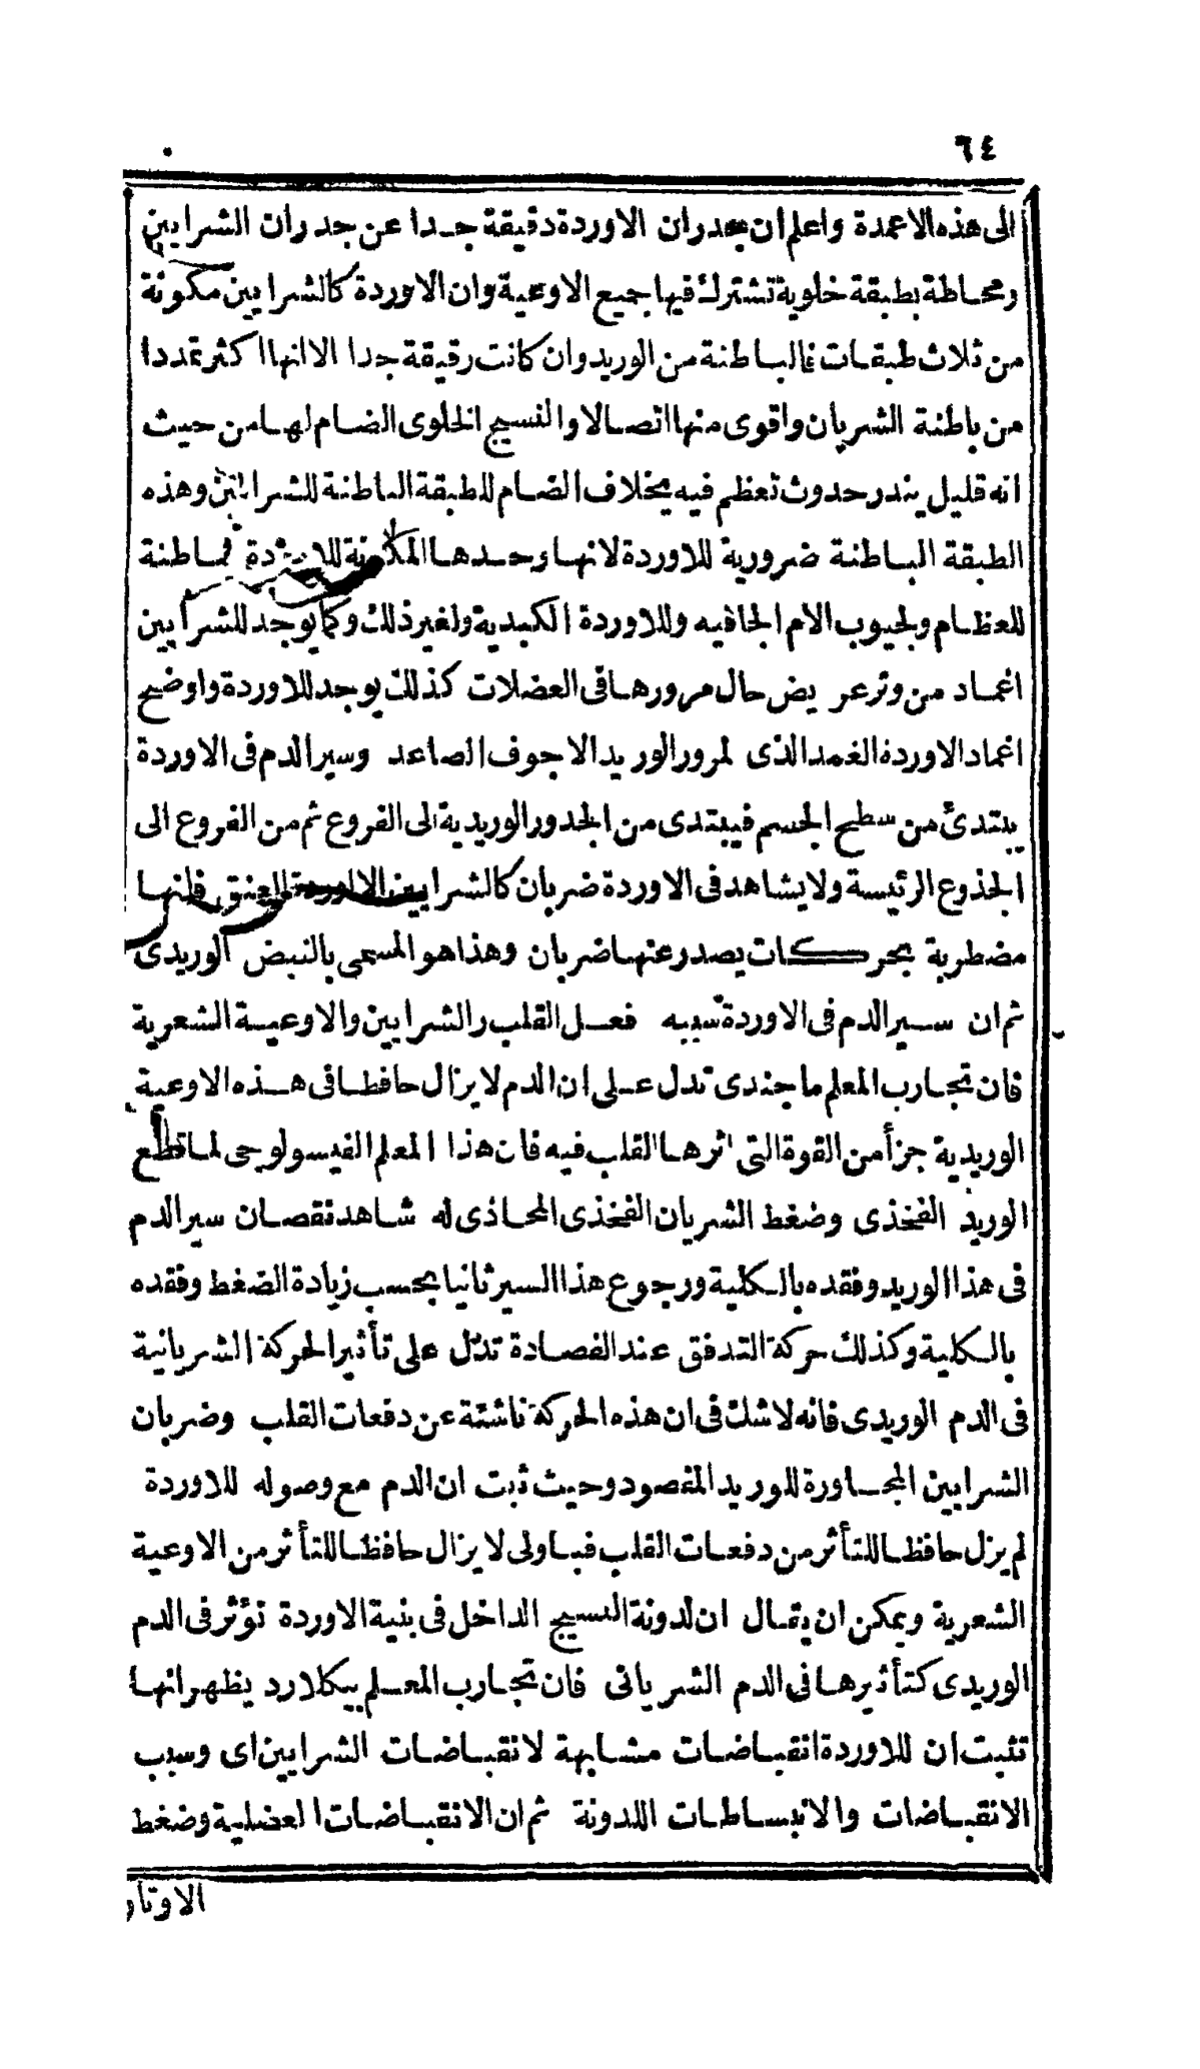 ٦٤
الى هذه الاعمدة واعلم ان جدران الاوردة دقيقة جدا عن جدران الشرايين
ومحاطة بطبقة خلوية تشترك فيها جميع الاوعية وان الاوردة كالشرايين مكونة
من ثلاث طبقات فالباطنة من الوريد وان كانت رقيقة جدا الا انها اكثر تمددا
من باطنة الشريان واقوى منها اتصالا والنسيج الخلوى الضام لها من حيث
انه قليل يندر حدوث تعظم فيه بخلاف الضام للطبقة الباطنة للشرايين وهذه
الطبقة الباطنة ضرورية للاوردة لانها وحدها المكونة للاوردة فباطنة
للعظام ولجيوب الام الجافيه وللاوردة الكبدية ولغير ذلك وكما يوجد للشرايين
اغماد من وتر عريض حال مرورها فى العضلات كذلك يوجد للاوردة واوضح
اغماد الاوردة الغمد الذى لمرور الوريد الاجوف الصاعد وسير الدم فى الاوردة
يبتدئ من سطح الجسم فيبتدى من الجذور الوريدية الى الفروع ثم من الفروع الى
الجذوع الرئيسة ولا يشاهد فى الاوردة ضربان كالشرايين الا اوردة العنق فانها
مضطربة بحركات يصدر عنها ضربان وهذا هو المسمى بالنبض الوريدى
ثم ان سير الدم فى الاوردة سببه فعل القلب والشرايين والاوعية الشعرية
فان تجارب المعلم ماجندى تدل على ان الدم لا يزال حافظا فى هذه الاوعية
الوريدية جزأ من القوة التى اثرها القلب فيه فان هذا المعلم الفيسولوجى لما قطع
الوريد الفخذى وضغط الشريان الفخذى المحاذى له شاهد نقصان سير الدم
فى هذا الوريد وفقده بالكلية ورجوع هذا السير ثانيا بحسب زيادة الضغط وفقده
بالكلية وكذلك حركة التدفق عند الفصادة تدل على تأثير الحركة الشريانية
فى الدم الوريدى فانه لا شك فى ان هذه الحركة ناشئة عن دفعات القلب وضربان
الشرايين المجاورة للوريد المقصود وحيث ثبت ان الدم مع وصوله للاوردة
لم يزل حافظا للتأثر من دفعات القلب فباولى لا يزال حافظا للتأثر من الاوعية
الشعرية ويمكن ان يقال ان لدونة النسيج الداخل فى بنية الاوردة تؤثر فى الدم
الوريدى كتأثيرها فى الدم الشريانى فان تجارب المعلم بيكلارد يظهر انها
تثبت ان للاوردة انقباضات مشابهة لانقباضات الشرايين اى وسبب
الانقباضات والانبساطات اللدونة ثم ان الانقباضات العضلية وضغط
الاوتار